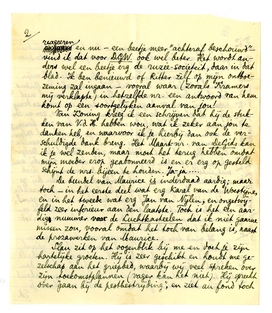 2/
reageren en nu — een beetje meer "achteraf beschouwd"
vind ik dat voor D.G.W. ook wel beter. Het wordt an-
ders wel een beetje erg de ruzie-sociëteit, daar in dat
blad. Ik ben benieuwd of Ritter zelf op mijn ontboe-
zeming zal ingaan — vooral waar (zoals Kramers
mij verklapte) in hetzelfde nr. een antwoord van hem
komt op een soortgelijken aanval van jou!
Van Loning kreeg ik een schrijven dat hij de stuk-
ken van V.d.H. hebben zou, wat ik zeker aan jou te
danken heb, en waarvoor ik je hierbij dan ook de ver-
schuldigde dank breng. Het Maart-nr. van dezen kan
ik je wel zenden, maar moet het terug hebben omdat
mijn moeder erop geabonneerd is en er erg op gesteld
schijnt de nrs. bijeen te houden. Ja-ja....
De bundel van Maurice is inderdaad aardig; maar
toch — in het eerste deel wat erg Karel van de Woestijne,
en in het tweede wat erg Jan van Nylen, en ongetwij-
feld zeer inferieur aan den laatste. Toch is het een aar-
dig nummer voor de Luchtkasteelen dat ik met gaarne
missen zou, vooral omdat het toch van belang is, naast
de prozawerken van Maurice.
zit op het oogenblik bij me en doet je zijn
hartelijke groeten. Hij is zeer geschikt en houdt me ge-
zelschap aan het griepbed, waarbij wij veel spreken over
zijn toekomstplannen (vage) kan het niet. Hij spreekt
over gaan bij de postbestrijding, en ziet af en toe toch